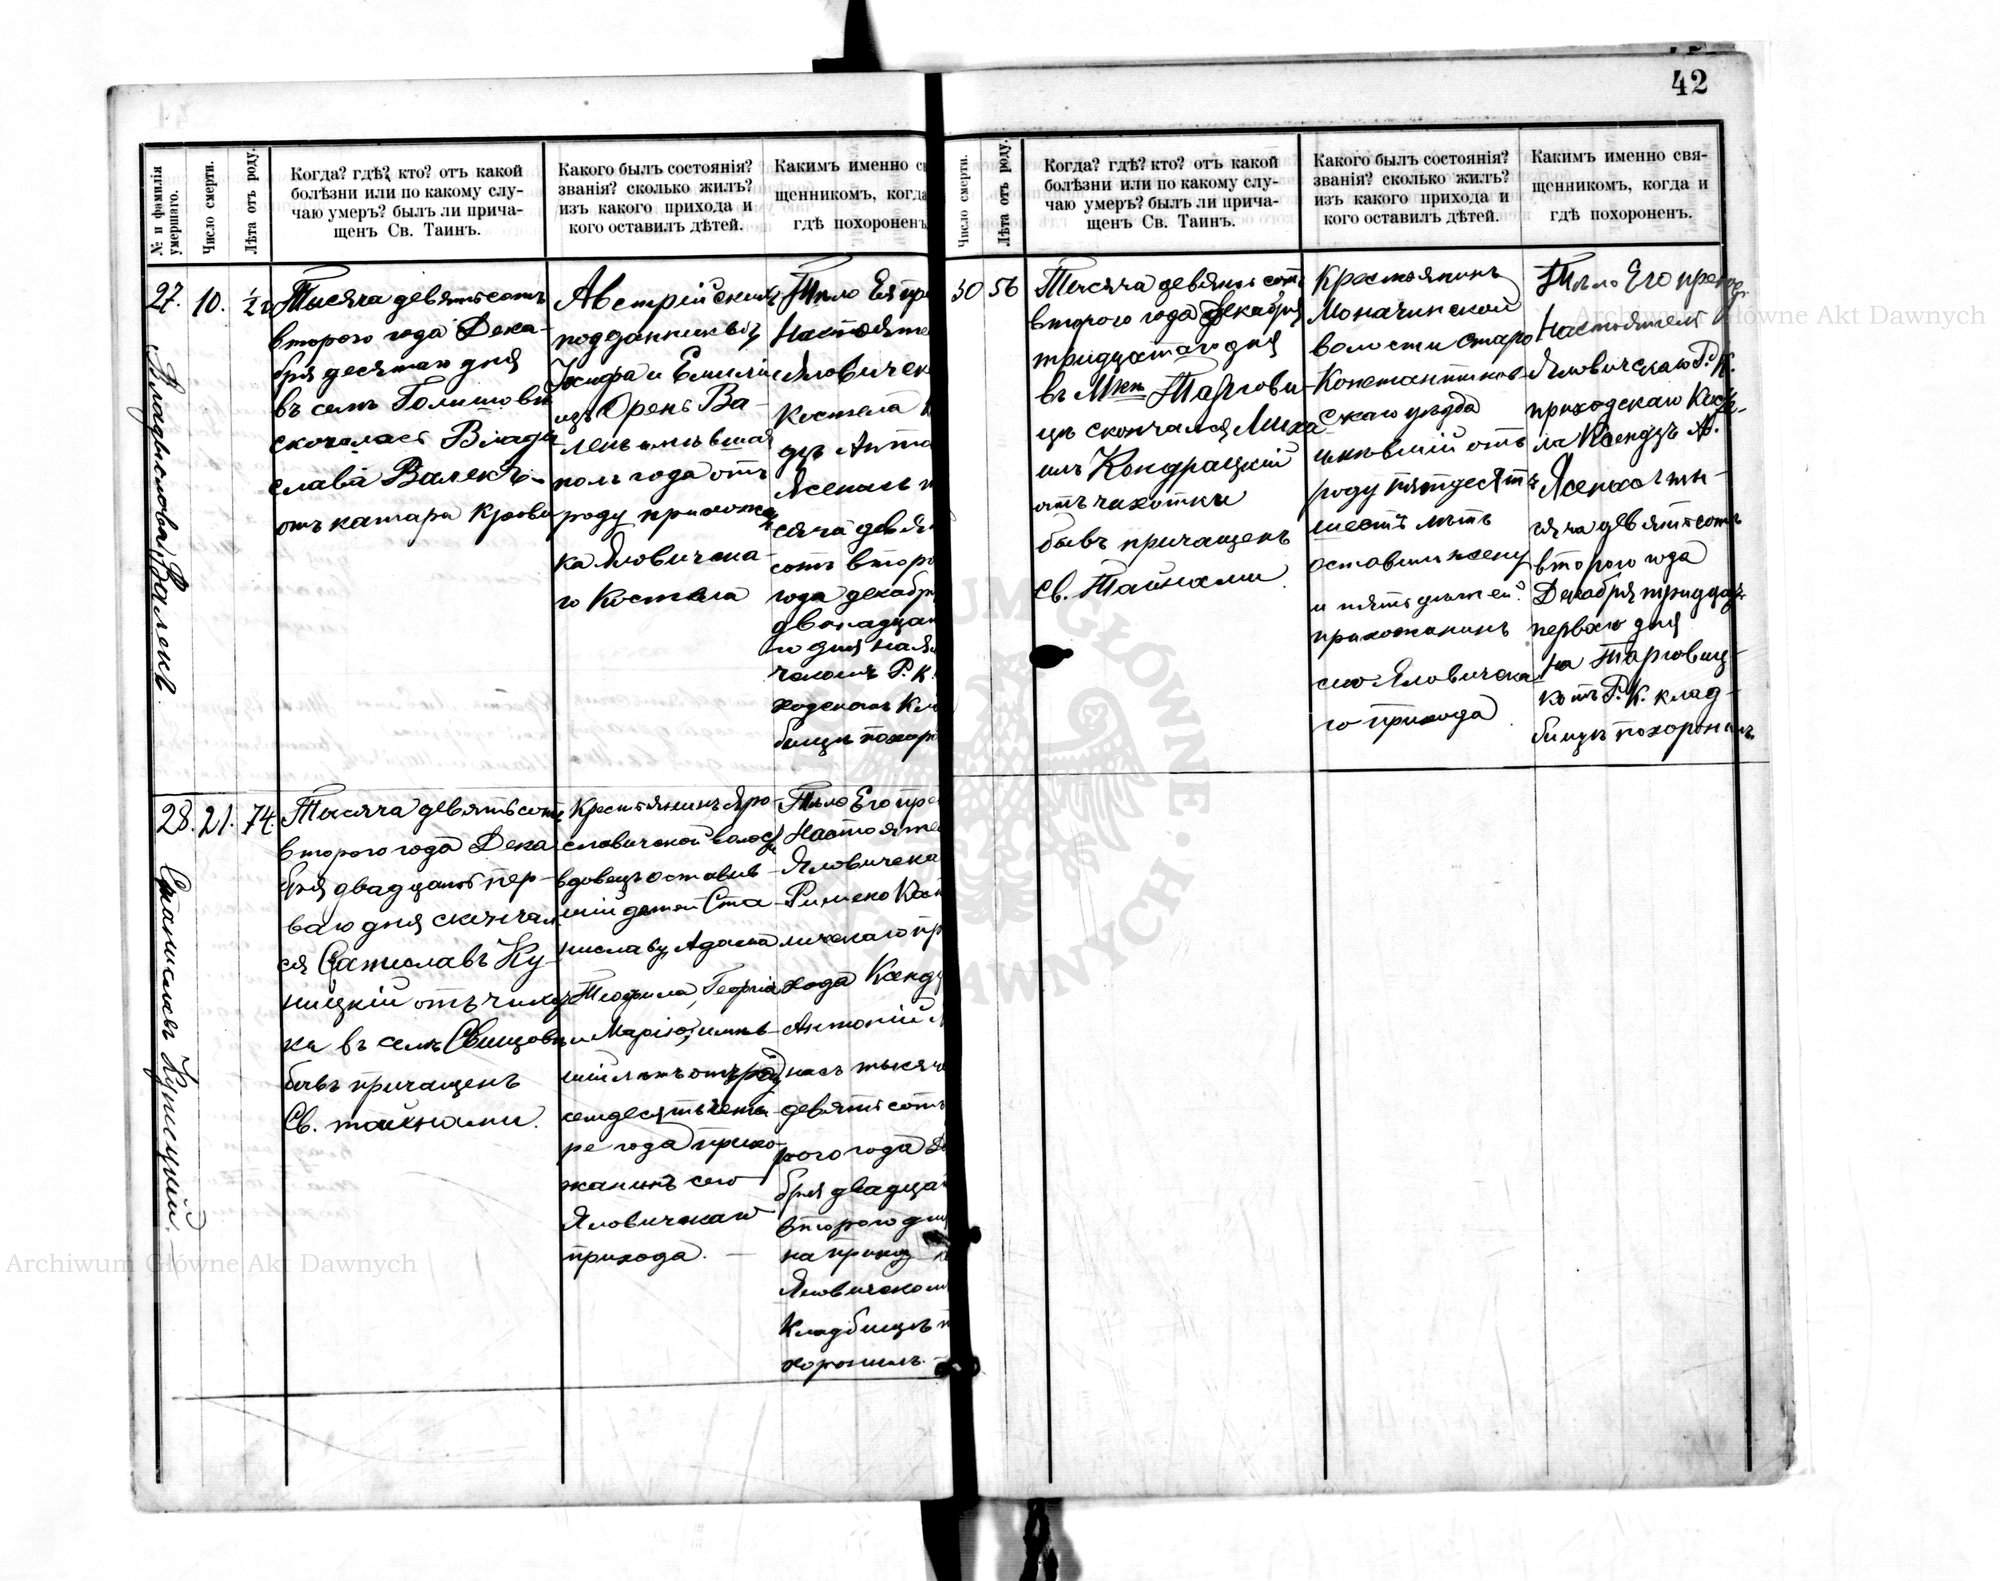 42
№; и фамилія умершаго.
Число смерти.
Лѣта отъ роду.
Когда? гдѣ? кто? отъ какой
болѣзни или по какому слу-
чаю умеръ? былъ ли прича-
щенъ Св. Таинъ.
Какого былъ состоянія?
званія? сколько жилъ?
изъ какого прихода и
кого оставилъ дѣтей.
Какимъ именно с
щенникомъ, когда
гдѣ похороненъ
27.
Владислава Валекъ
10.
½ г
Тысяча девятьсотъ
второго года Дека-
бря десятаго дня
въ селѣ
скочалась Влади
слава Валекъ
отъ катара крови
Австрійскихъ
подданныхъ
Іосифа и Емиліи
Ва-
лекъ имѣвшая
полъ года отъ
роду прихожан
ка Яловичска-
го Костела
Тѣло Ея пре
Настояте
Яловичск
Костела К
дзъ Анто
Ясенасъ т
сяча девя
сотъ второ
года декабр
двенадцат
го дня на Ял
Р. К.
ходскомъ Кла
бищѣ похоро
28.
Станиславъ Куницкій.
21.
74.
Тысяча девятьсотъ
второго года Дека
бря двадцать пер-
ваго дня скончал
ся Станиславъ Ку-
ницкій отъ
ка въ селѣ
бывъ причащенъ
Св. тайнами.
Крестьянинъ Яро-
славичской волос
вдовецъ оставив-
шій дѣтей Ста
ниславу, Адама
Теофила, Георгія
и Марію, имѣв-
шій лѣтъ отъ роду
семдесять четы-
ре года прихо-
жанинъ сего
Яловичскаго
прихода. —
Тѣло Его пре
Настояте
Яловичска
Римско Кат
личскаго пр
хода Ксендз
Антоній Я
насъ тысяча
девятьсотъ
рого года Де
бря двадцат
второго дня
на приход
Яловичском
Кладбищѣ п
хоронилъ. —
Число смерти.
Лѣта отъ роду.
Когда? гдѣ? кто? отъ какой
болѣзни или по какому слу-
чаю умеръ? былъ ли прича-
щенъ Св. Таинъ.
Какого былъ состоянія?
званія? сколько жилъ?
изъ какого прихода и
кого оставилъ дѣтей.
Какимъ именно свя-
щенникомъ, когда и
гдѣ похороненъ.
30
56
Тысяча девятьсотъ
второго года Декабря
тридцатаго дня
въ Торгови-
цѣ скончался Миха
илъ Кондрацкій
отъ чахотки
бывъ причащенъ
Св. Тайнами.
Крестьянинъ
Моначинской
волости Старо
Константинов-
скаго уѣзда
имѣвшій отъ
роду пятдесятъ
шесть лѣтъ
оставилъ жену
и пять дѣтей
прихожанинъ
сего Яловичска-
го прихода.
Тѣло Его препод.
Настоятель
Яловичскаго Р. К.
приходскаго Косте-
ла Ксендзъ А.
Ясенасъ ты-
сяча девятьсотъ
второго года
Декабря тридцать
перваго дня
на Торговиц-
комъ Р. К. клад-
бищѣ похоронилъ
Archiwum Główne Akt Dawnych
Archiwum Główne Akt Dawnych